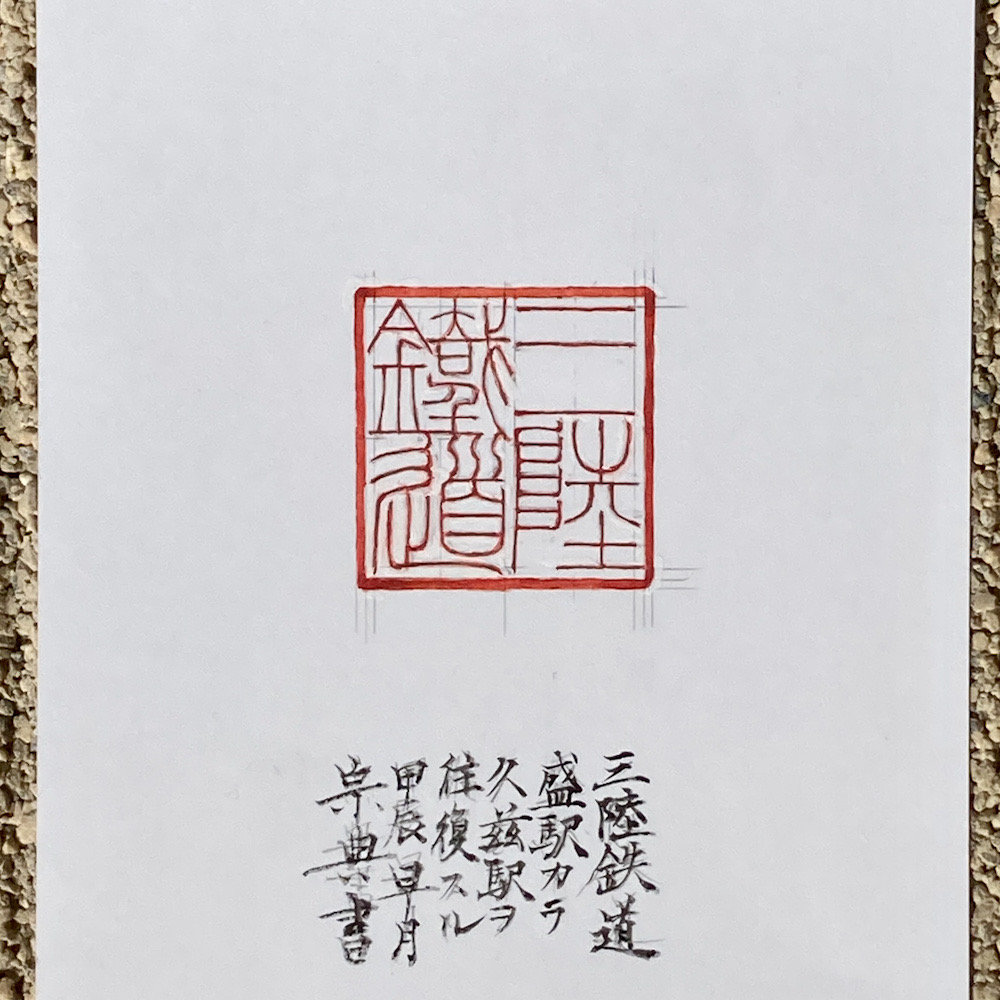 三陸
鐵道
三陸鉄道
盛駅カラ
久慈駅ヲ
往復スル
甲辰皐月
宗典書